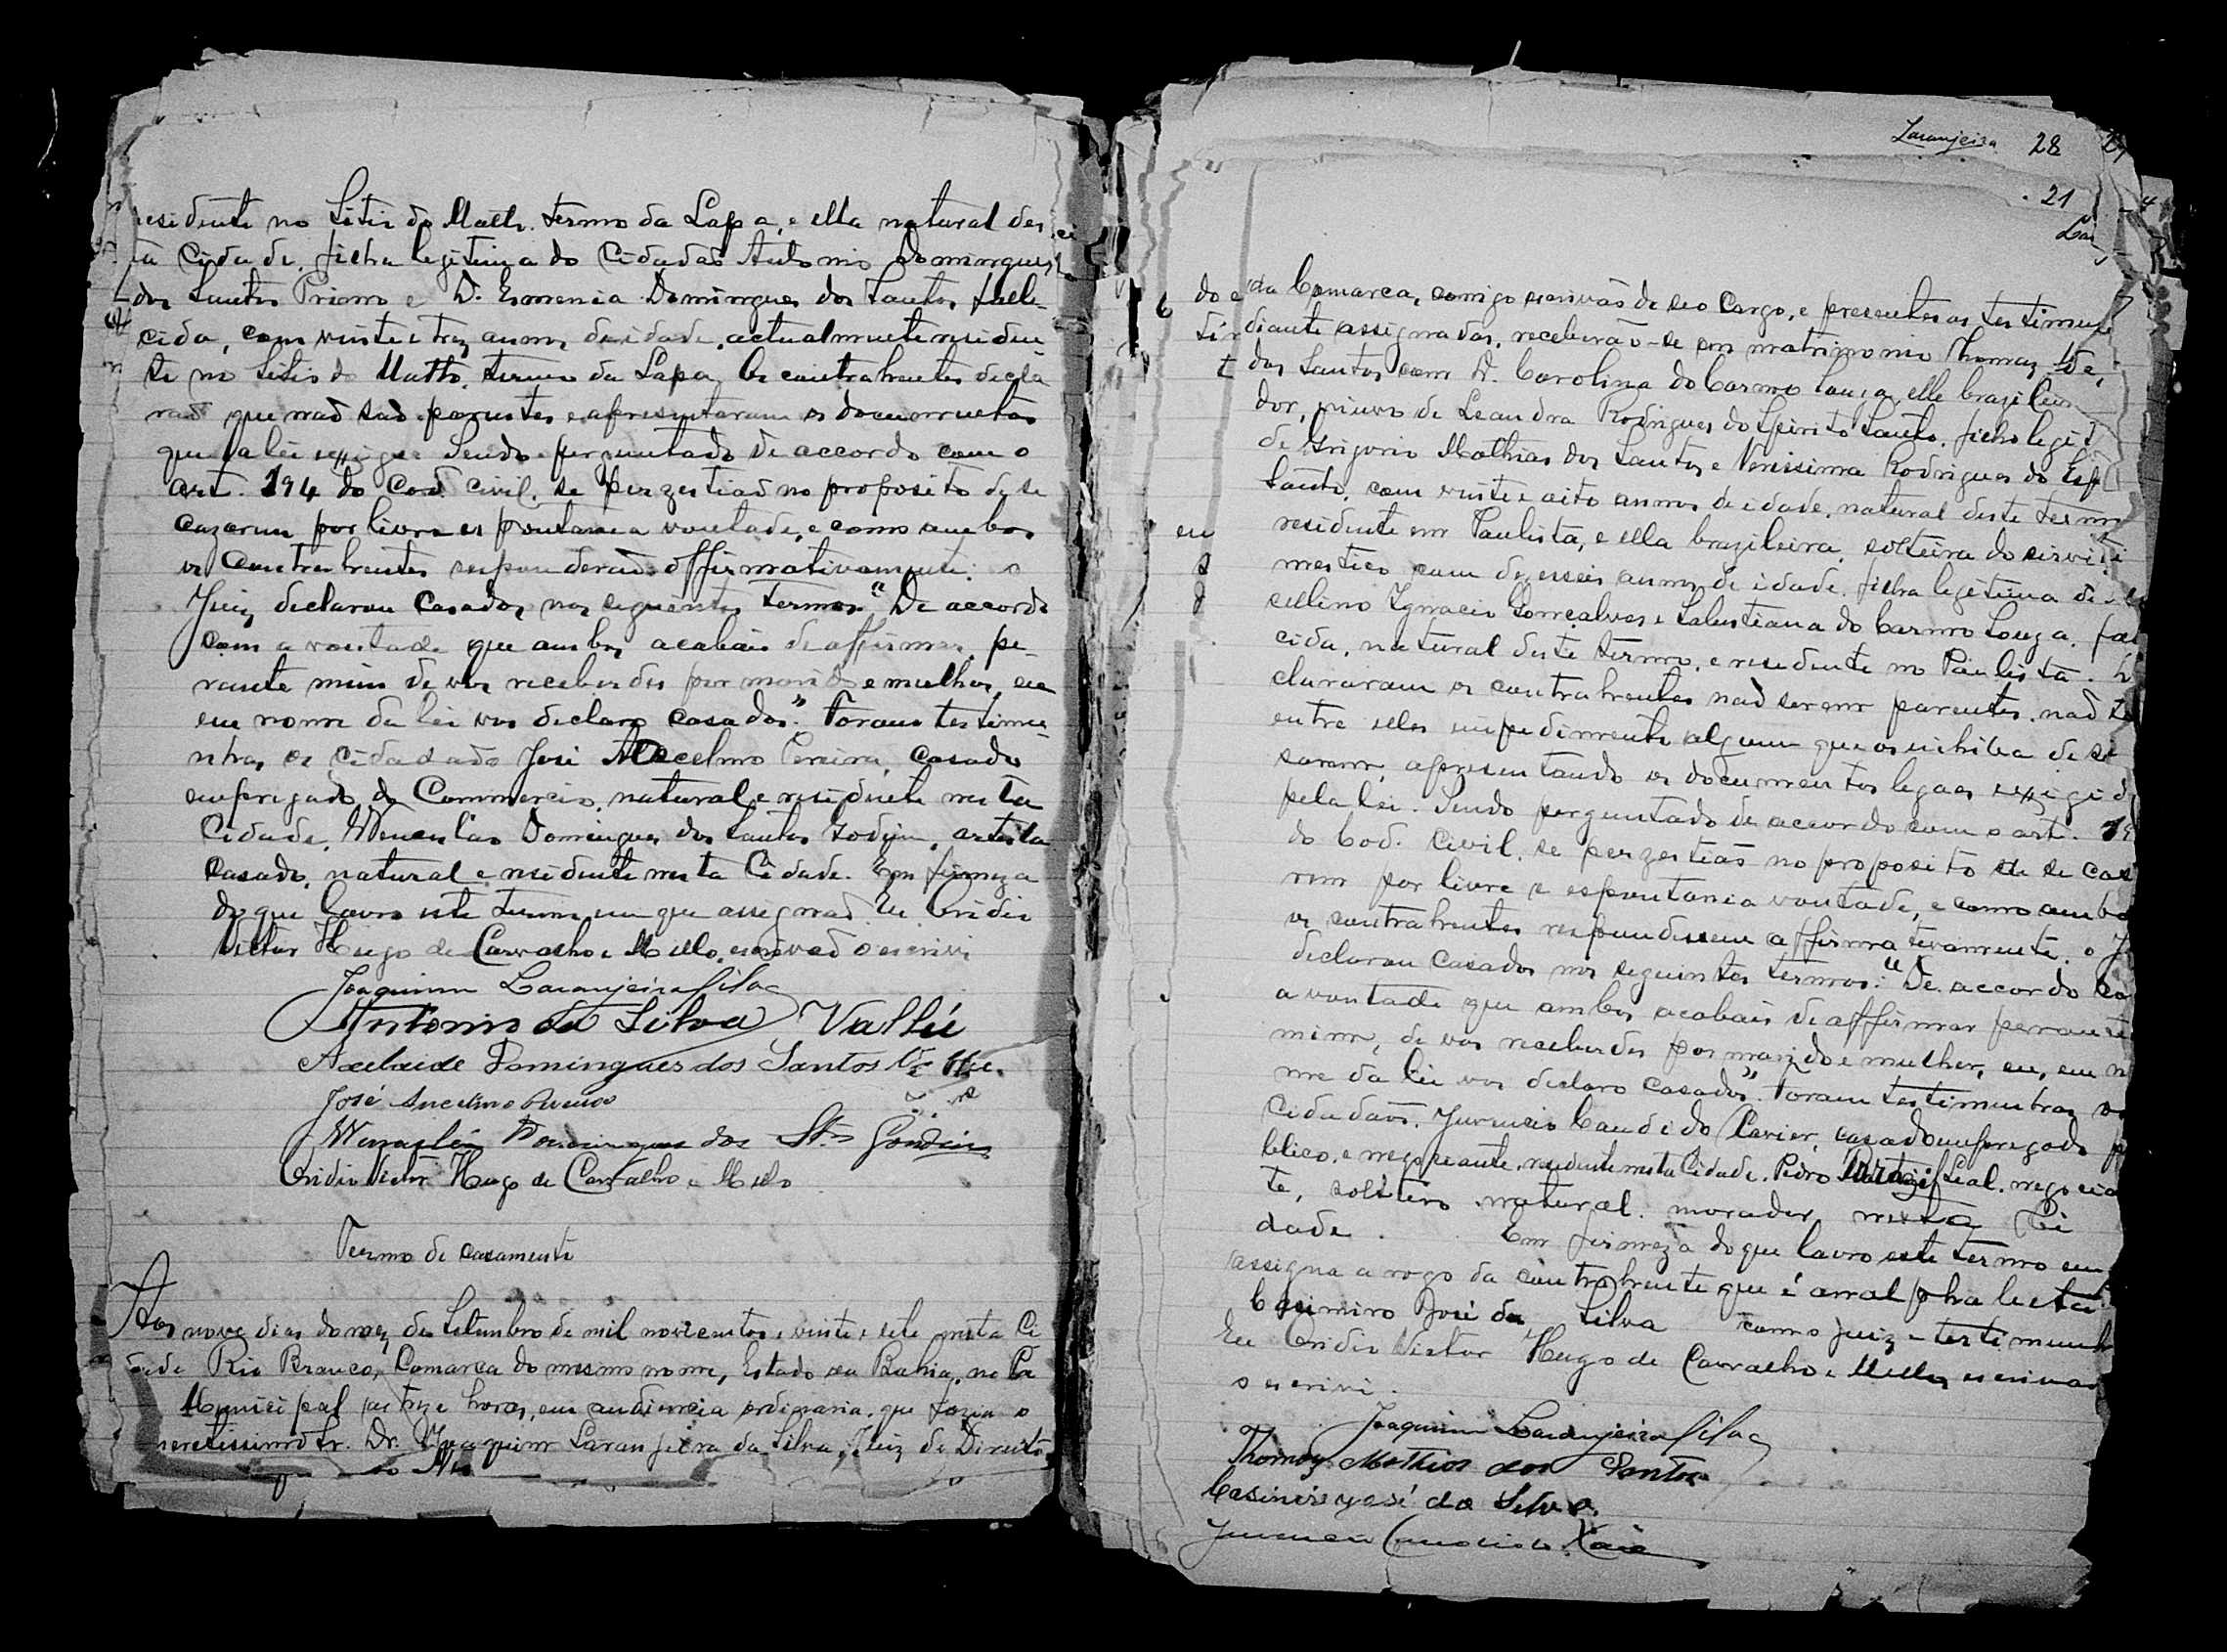 residente no Sitio do Matto. termo da Lapa, e ella natural des
ta Cidade, filha legitima do Cidadão Antonio Domingues
dos Santos Primo e D. Esmenia Domingues dos Santos, falle-
cida, com vinte e trez annos de idade, actualmente residen-
te no Sitio do Matto, termo da Lapa. Os contrahentes decla
rão que não são parentes e apresentaram os documentos
que a lei exige. Sendo perguntado de accordo com o
art. 194 do Cod. Civil, se perzestião no proposito de se
cazarem por livre es pontanea vontade, e como ambos
os Contrahentes responderão affirmativamente: o
Juiz declarou casados, nos seguintes termos: "De accordo
com a vontade que ambos acabais de affirmar, pe-
rante mim de vos receberdes por marido e mulher, eu
em nome da lei vos declaro casados." Foram testimu
nhas os cidadão José Ancelmo Pereira, casado
empregado do Commercio, natural e residente nesta
Cidade, Wencesláo Domingues dos Santos Godim, artista
casado, natural e residente nesta Cidade. Em firmeza
do que lavro este termo em que assignão. Eu Ovidio
Victor Hugo de Carvalho e Mello, escrivão o escrivi
Joaquim Laranjeira Silva
Antonio da Silva Vallú
Adelaide Domingues dos Santos
José Ancelmo Pereira
Wencesláo Domingues dos Stos Gondim
Ovidio Victor Hugo de Carvalho e Mello
Termo de casamento
Aos nove dias do mez de Setembro de mil novicentos e vinte e sete nesta Ci
dade Rio Branco, Comarca do mesmo nome, Estado da Bahia, na Ca
Municipal, as treze horas, em audiencia ordinaria, que fazia o
meretissimo Sr. Dr. Joaquim Laranjeira da Silva, Juiz de Direito
Laranjeira 28
21
da Comarca, comigo escrivão de seo cargo, e presentes as testimu
diante assignadas, receberão-se em matrimonio Thomaz
dos Santos com D. Carolina do Carmo Souza, elle brazileiro
dor, viuvo de Leandra Rodrigues do Spirito Santo, filho legit
de Grigorio Mathias dos Santos e Verissima Rodrigues do Esp
Santo, com vinte e oito annos de idade, natural deste termo
residente em Paulista, e ella brazileira, solteira do servisi
mestico com dezesseis annos de idade, filha legitima de
cellino Ignacio Gonçalves e Salustiana do Carmo Souza, fal
cida, natural deste termo, e residente no Paulista.
clararam os contrahentes não serem parentes, não
entre elles impedimento algum que os inhiba de se
sarem, apresentando os documentos legaes exigid
pela lei. Sendo perguntado de accordo com o art. 19
do Cod. Civil, se perzestião no proposito de se cas
rem por livre e espontania vontade, e como ambo
os contrahentes respondessem affirmativamente, o J
declarou casados nos seguintes termos: "De accordo co
a vontade que ambos acabais de affirmar perante
mim, de vos receberdes por marido e mulher, eu, em n
me da lei vos declaro casados". Foram testimunhas os
cidadãos. Juvencio Candido Xavier, casado empregado p
blico, e negociante, residente nesta Cidade, Pedro Leal, negocia
te, solteiro natural morador nesta Ci
dade. Em firmeza do que lavro este termo em
assigna a rogo da contrahente que é analphabeta
Casimiro José da Silva como juiz e testimunh
Eu Ovidio Victor Hugo de Carvalho e Mello, escrivão
o escrivi.
Joaquim Laranjeira Silva
Thomaz Mathias dos Santos
Casimiro José da Silva.
Juvencio Candido Xavier